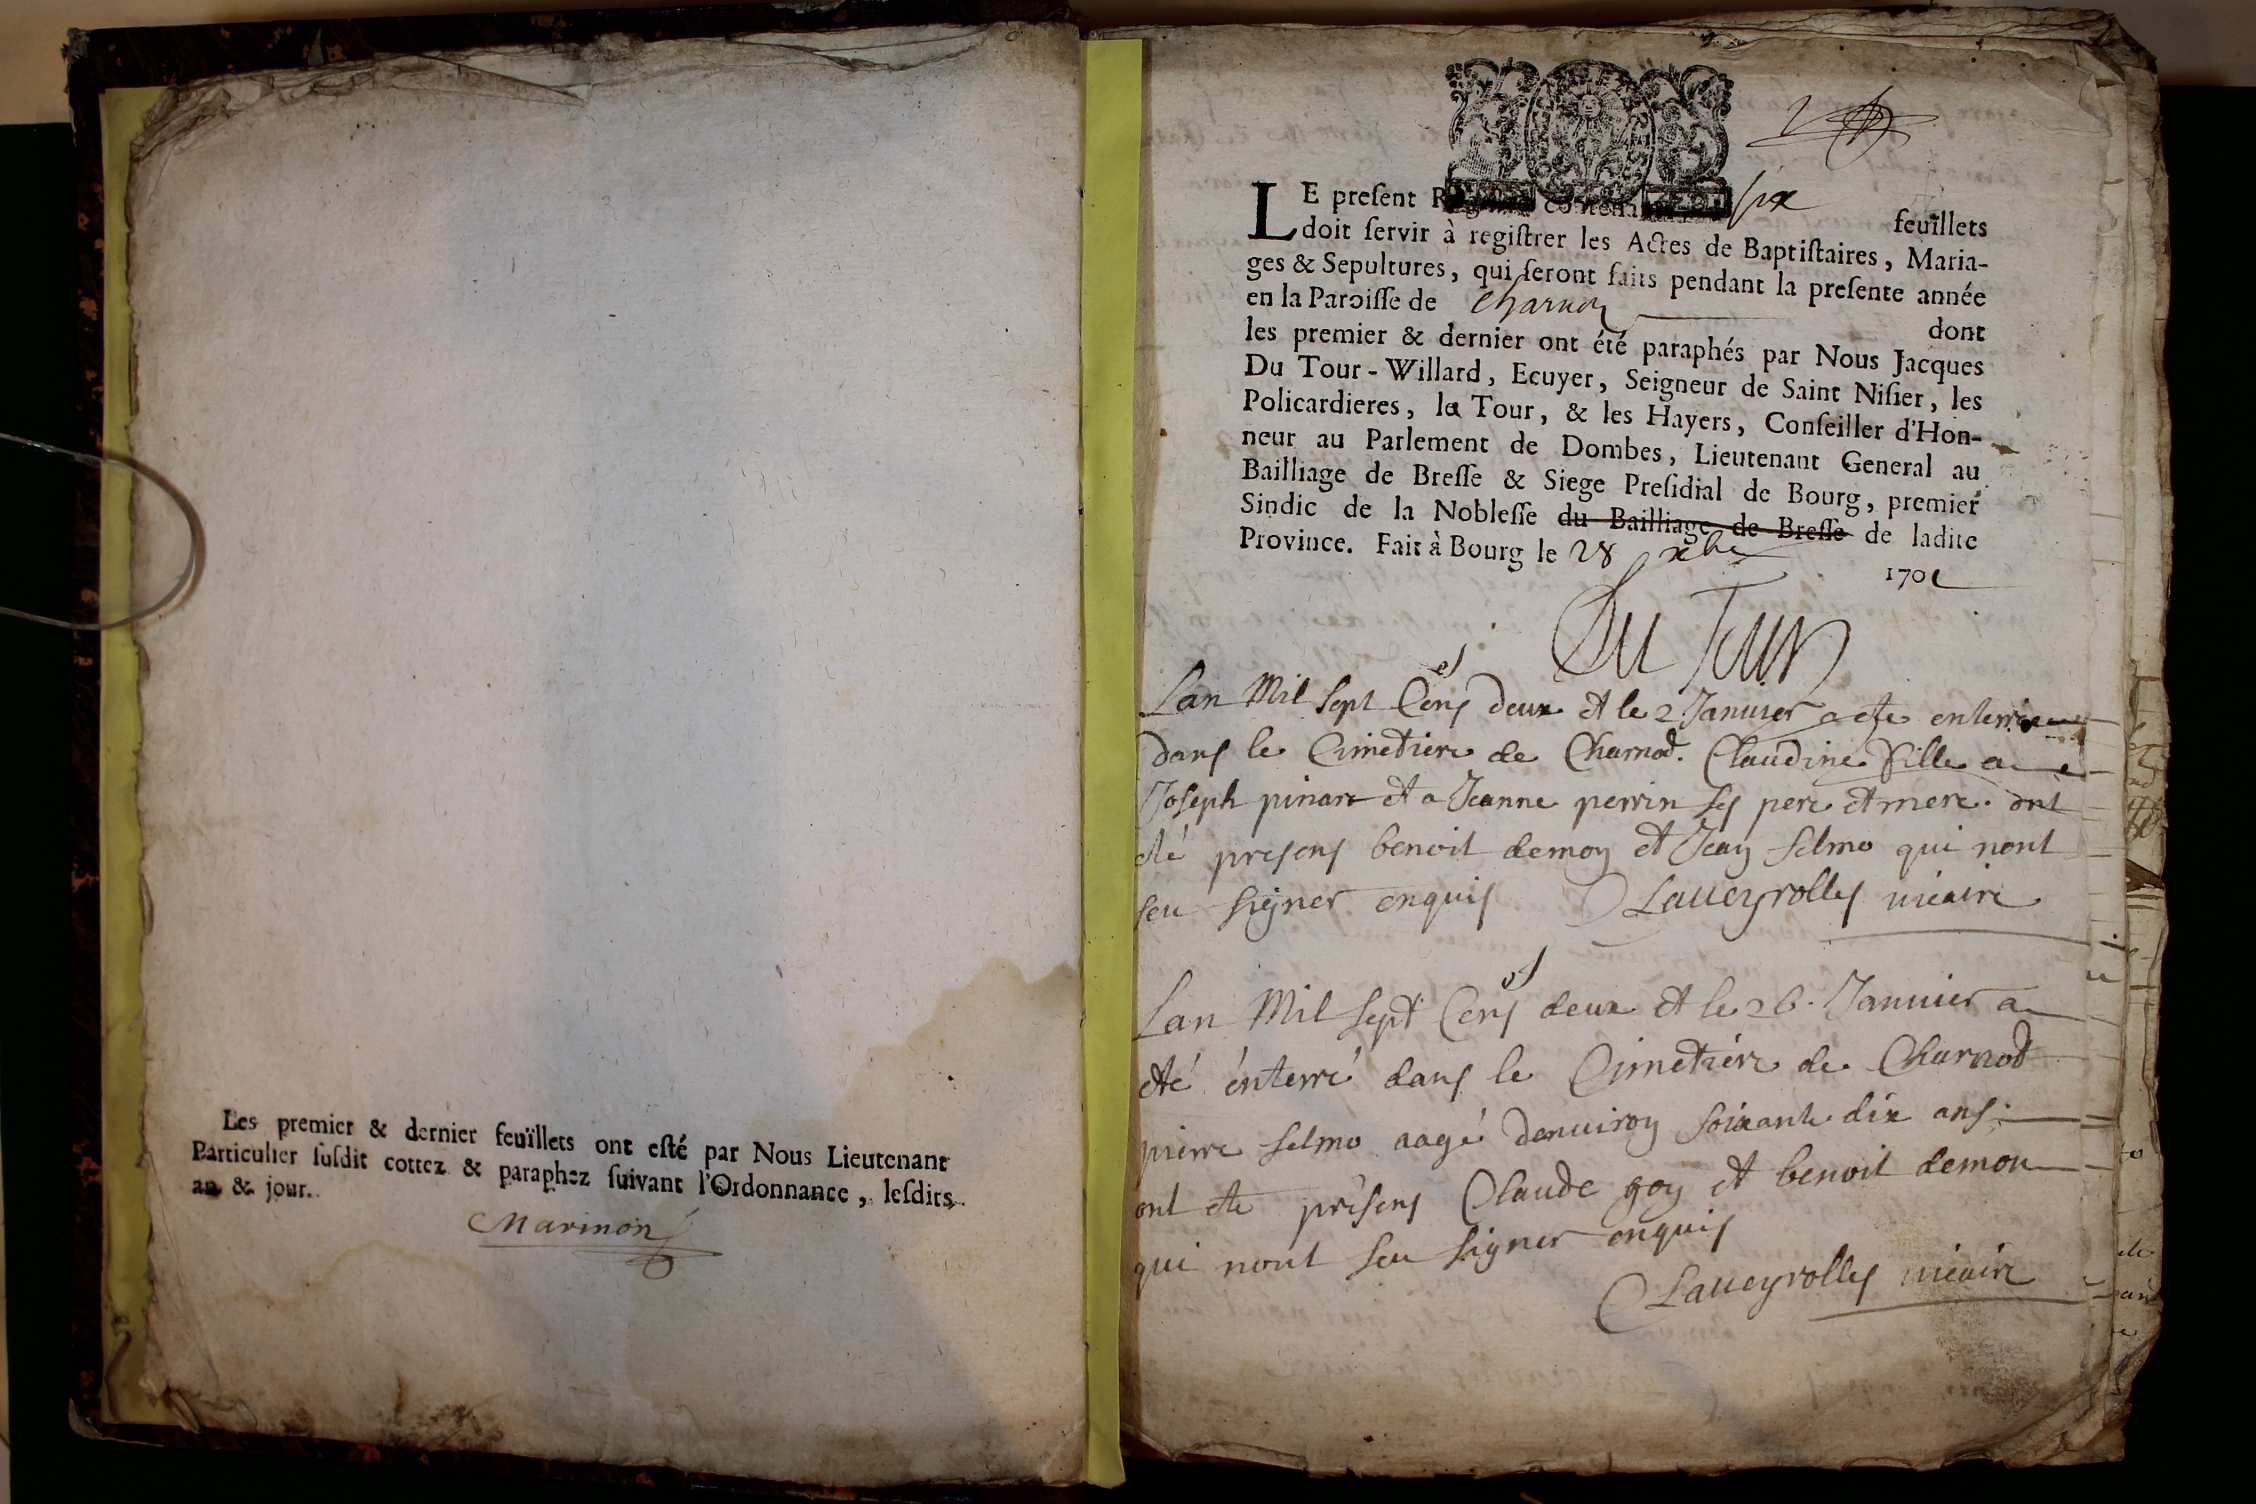 Les premier & dernier feuillets ont esté par Nous Lieutenant
Particulier susdit cottez & paraphez suivant l'Ordonnance, lesdits
an & jour.
Marinon
LE present Registre contenant six feuillets
doit servir à registrer les Actes de Baptistaires, Maria-
ges & Sepultures, qui seront faits pendant la presente année
en la Paroisse de Charnod dont
les premier & dernier ont été paraphés par Nous Jacques
Du Tour-Willard, Ecuyer, Seigneur de Saint Nisier, les
Policardieres, la Tour, & les Hayers, Conseiller d'Hon-
neur au Parlement de Dombes, Lieutenant General au
Bailliage de Bresse & Siege Presidial de Bourg, premier
Sindic de la Noblesse du Bailliage de Bresse de ladite
Province. Fait à Bourg le 28 xbre 1701
Du Tour
Lan Mil sept Cens deux et le 2 Januier a ete enterrée
dans le Cimetiere de Charnod. Claudine fille a
Joseph pinart et a Jeanne perrin ses pere et mere. ont
été presens benoit demoy et Jean selmo qui nont
seu signer enquis Laueyrolles uicaire
Lan Mil sept Cens deux et le 26. Januier a
été énterré dans le Cimetiére de Charnod
pierre selmo aagé denuiron soixante dix ans.
ont ete présens Claude goy et benoit demou
qui nont seu signer enquis
Laueyrolles uicaire